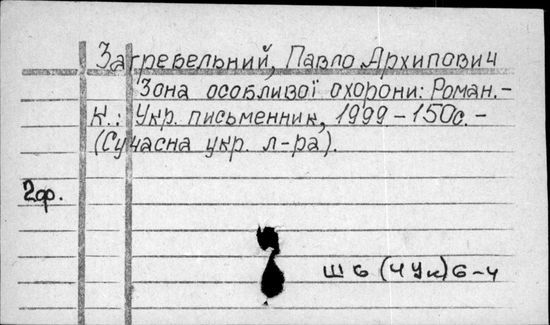 Загребельний, Павло Архипович
Зона особливої охорони: Роман.-
К.: Укр. письменник, 1999-150с.-
(Сучасна укр. л-ра).
2ф.
Ш6(4Ук)6-4